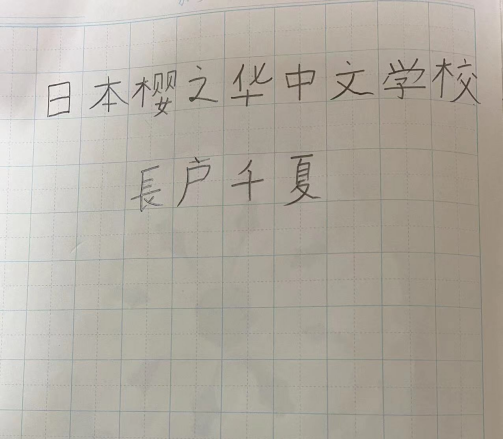 日本樱之华中文学校
長户千夏